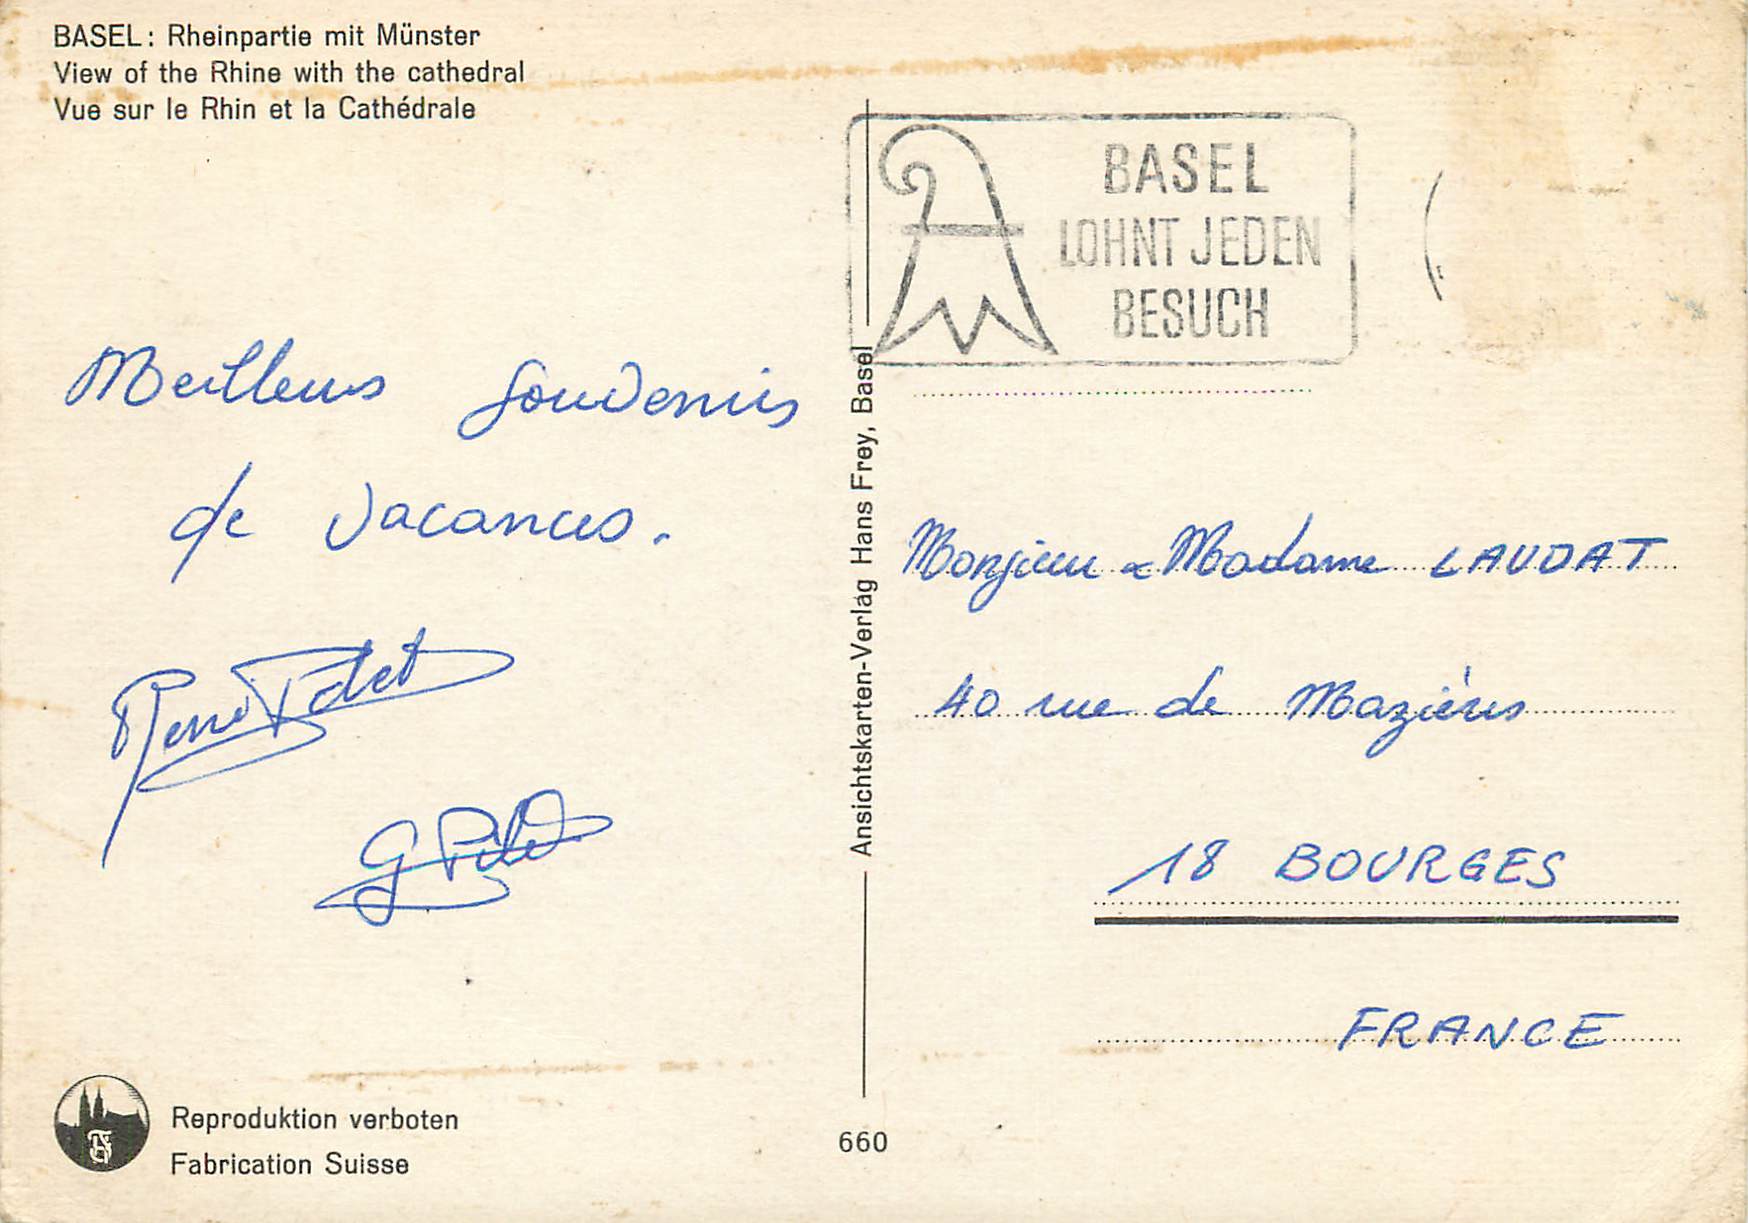 BASEL: Rheinpartie mit Münster
View of the Rhine with the cathedral
Vue sur le Rhin et la Cathédrale
BASEL
LOHNT JEDEN
BESUCH
Meilleurs Souvenirs
de vacances.
René
G
Ansichtskarten-Verlag Hans Frey, Basel
Monsieur & Madame LAUDAT
40 rue de Mazières
18 BOURGES
FRANCE
Reproduktion verboten
Fabrication Suisse
660